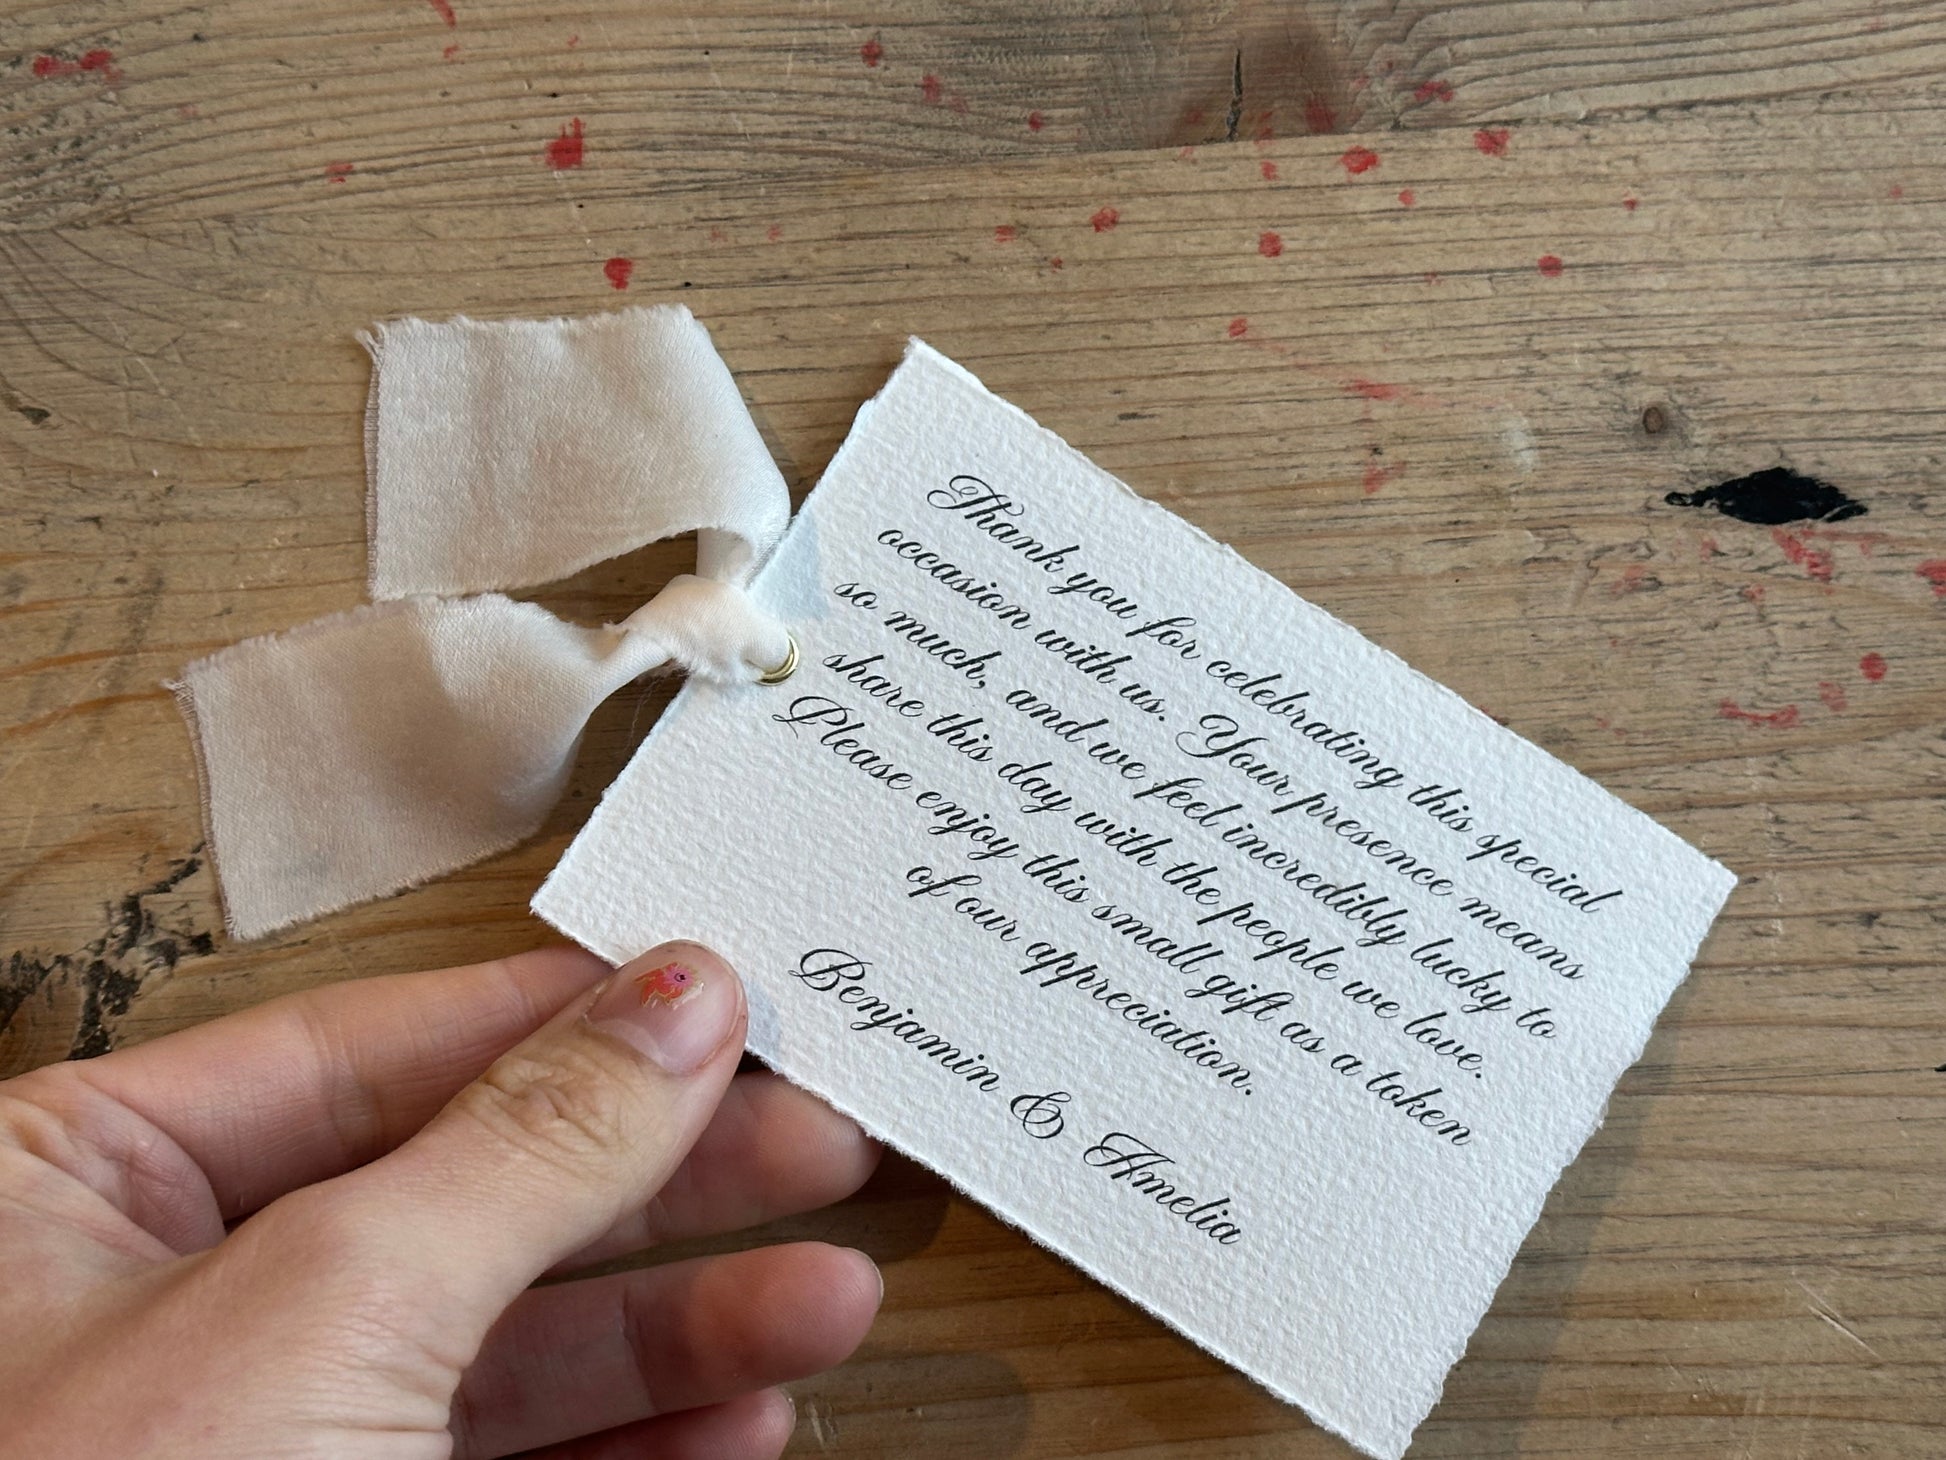 Thank you for celebrating this special
occasion with us. Your presence means
so much, and we feel incredibly lucky to
share this day with the people we love.
Please enjoy this small gift as a token
of our appreciation.
Benjamin & Amelia